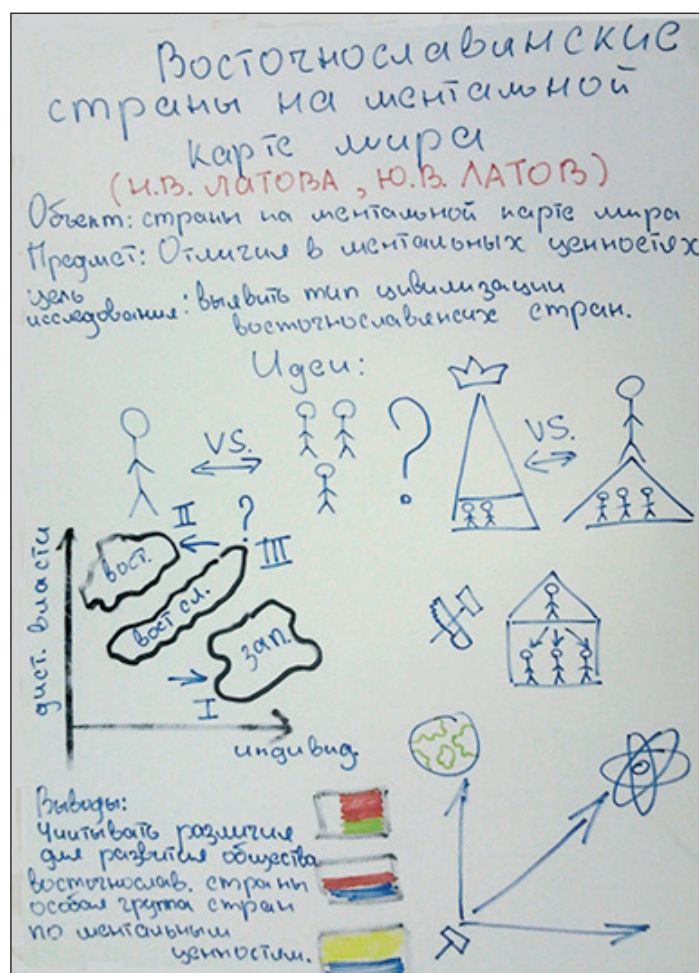 Восточнославянские
страны на ментальной
карте мира
(Н.В. ЛАТОВА, Ю.В. ЛАТОВ)
Объект: страны на ментальной карте мира
Предмет: Отличия в ментальных ценностях
цель
исследования: выявить тип цивилизации
восточнославянсих стран.
Идеи:
VS.
?
VS.
II
?
III
вост.
вост сл.
зап.
I
дист. власти
индивид.
Выводы:
Учитывать различия
для развития общества
восточнослав. страны
особая группа стран
по ментальным
ценностям.